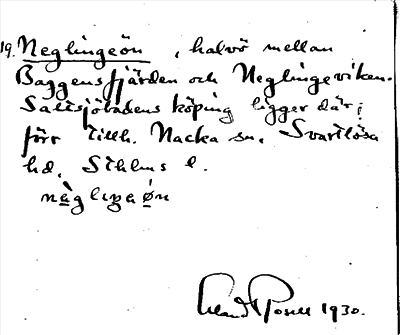 19. Neglingeön, halvö mellan
Baggensfjärden och Neglingeviken.
Saltsjöbadens köping ligger där;
förr tillh. Nacka sn. Svartlösa
hd. Sthlms l.
1930.